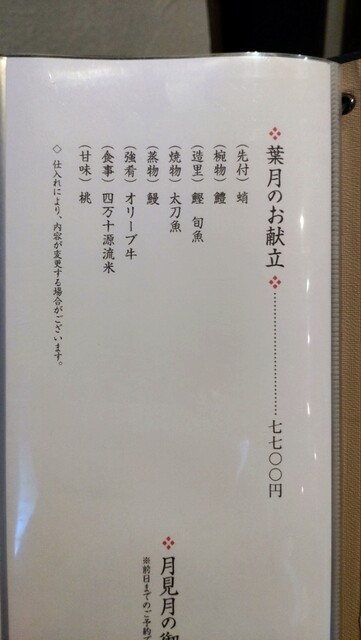 葉月のお献立 七七〇〇円
(先付) 蛸
(椀物) 鱧
(造里) 鰹 旬魚
(焼物) 太刀魚
(蒸物) 鰻
(強肴) オリーブ牛
(食事) 四万十源流米
(甘味) 桃
◇ 仕入れにより、内容が変更する場合がございます。
月見月の御
※前日までのご予約で